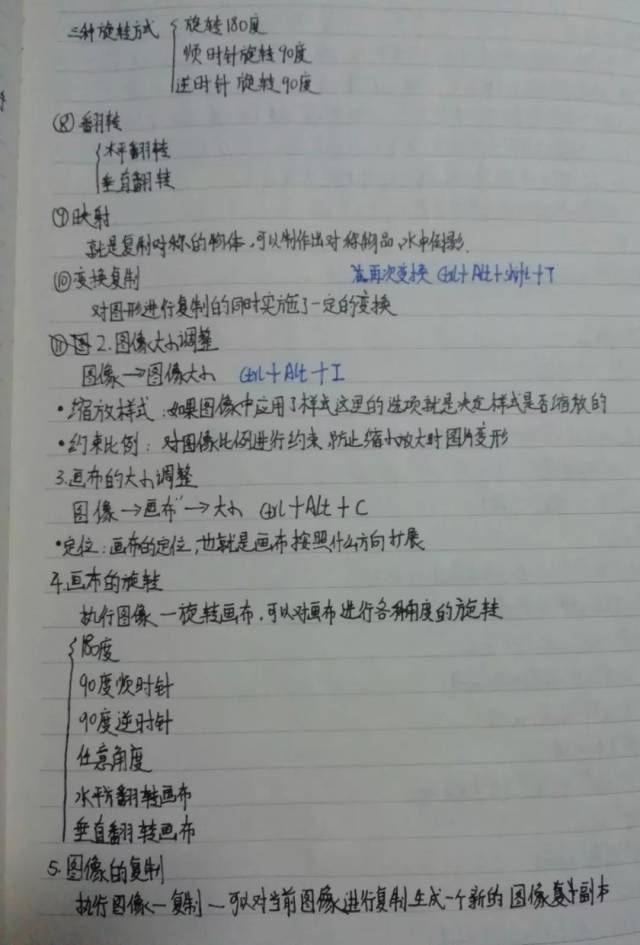 三种旋转方式 { 旋转180度
顺时针旋转90度
逆时针旋转90度
⑧翻转
水平翻转
垂直翻转
⑨映射
就是复制对称的物体,可以制作出对称物品,水中倒影.
⑩变换复制 再次变换 Ctrl+Alt+shift+T
对图形进行复制的同时实施了一定的变换
2.图像大小调整
图像→图像大小 Ctrl+Alt+I
·缩放样式:如果图像中应用了样式这里的选项就是决定样式是否缩放的
·约束比例:对图像比例进行约束,防止缩小放大时图片变形
3.画布的大小调整
图像→画布→大小 Ctrl+Alt+C
·定位:画布的定位,也就是画布按照什么方向扩展
4.画布的旋转
执行图像—旋转画布,可以对画布进行各种角度的旋转
180度
90度顺时针
90度逆时针
任意角度
水平翻转画布
垂直翻转画布
5.图像的复制
执行图像—复制—可以对当前图像进行复制生成一个新的图像副本